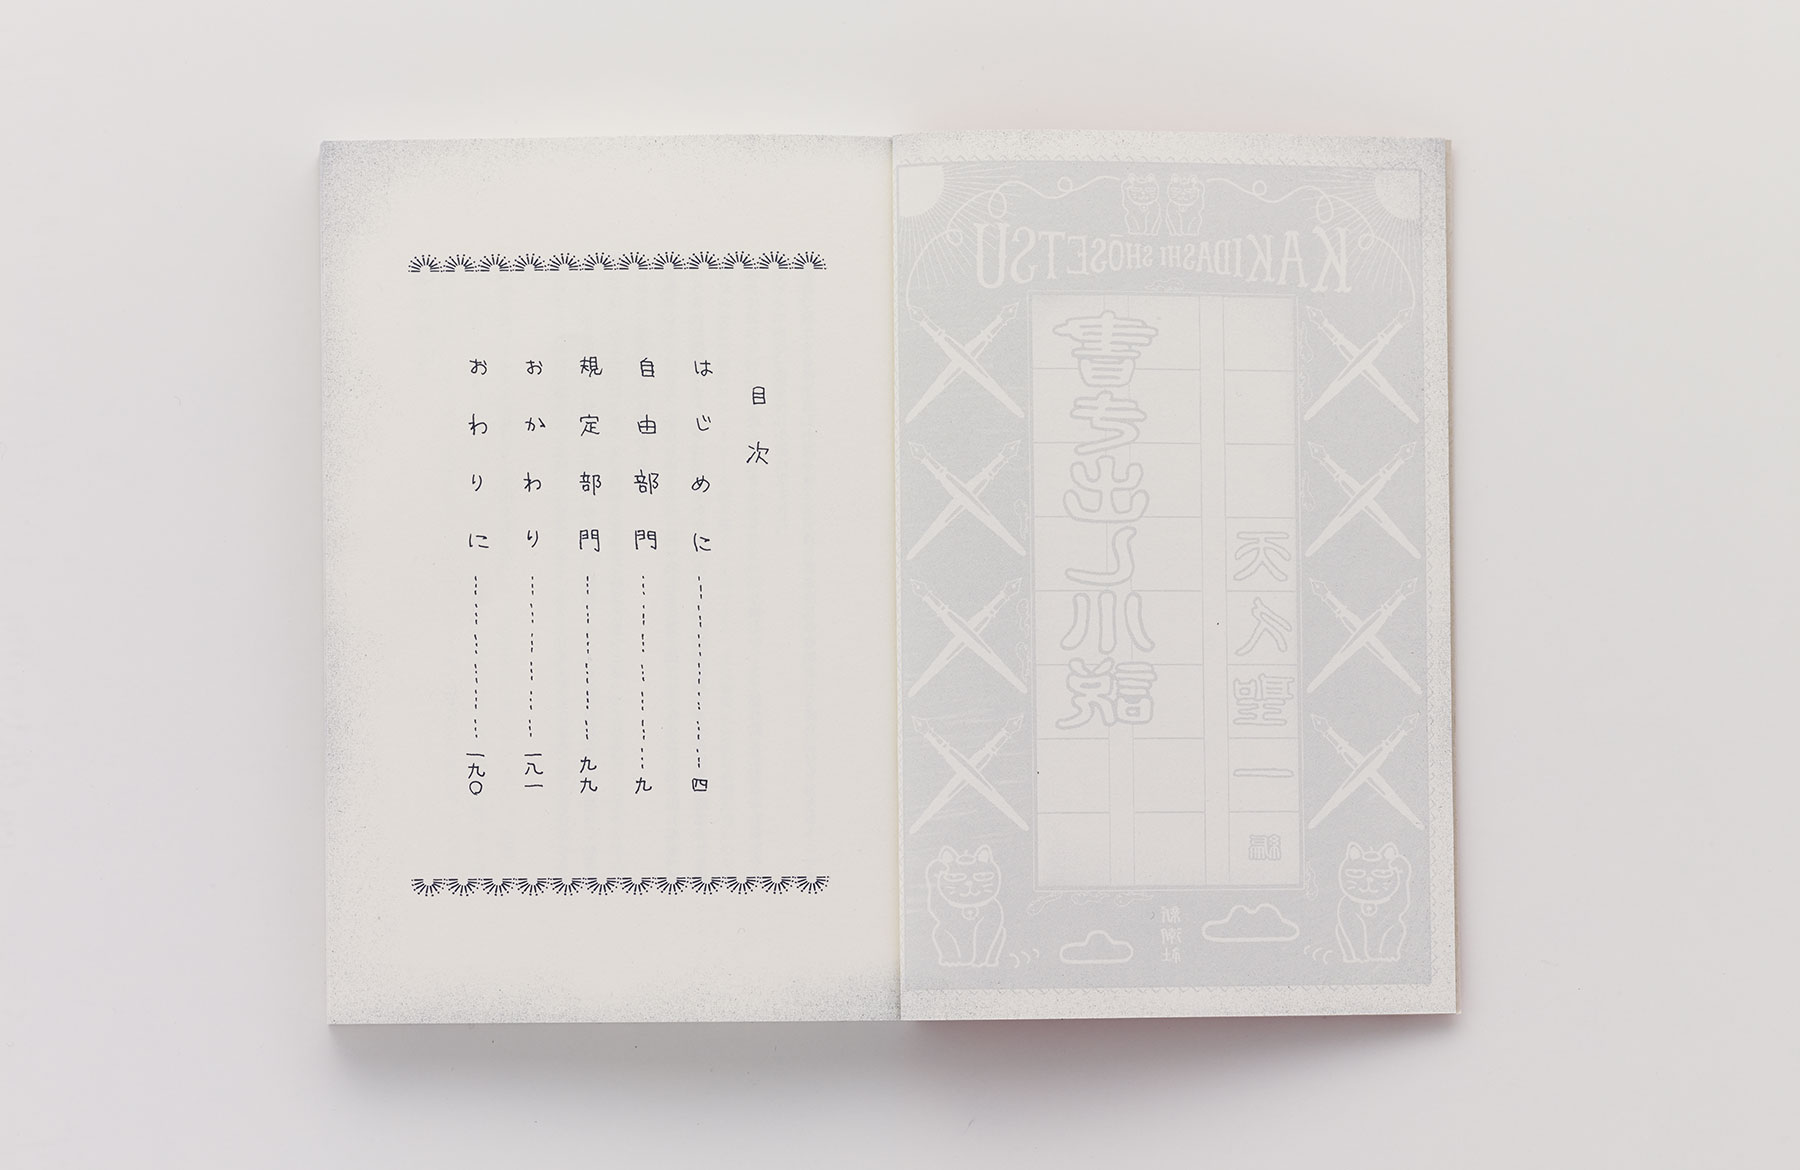 KAKIDASHI SHŌSETSU
書き出し小説
天久聖一 編
新潮社
目次
はじめに……四
自由部門……九
規定部門……九九
おかわり……一八一
おわりに……一九〇